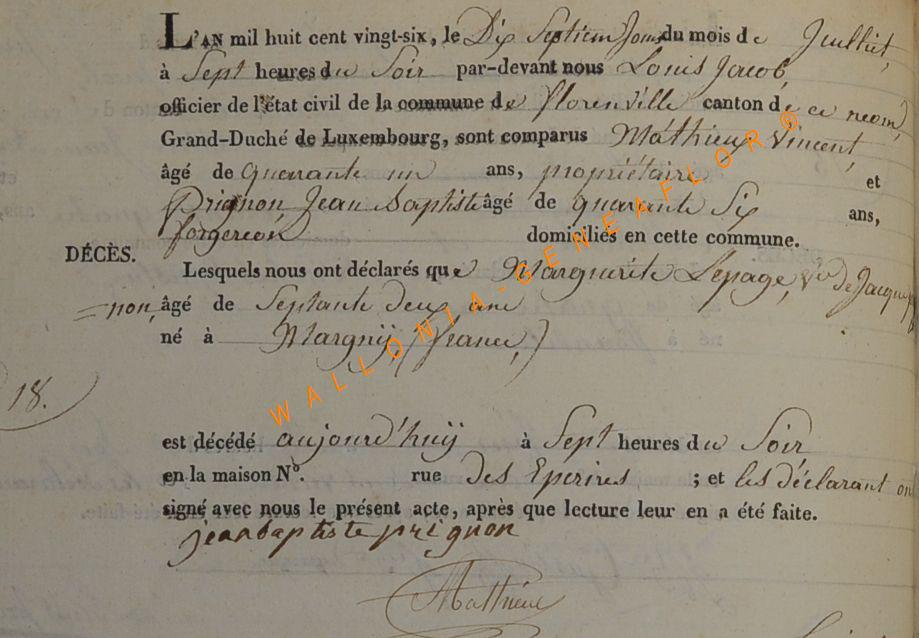 L'AN mil huit cent vingt-six, le Dix Septiem Jour du mois de Juilliet,
à Sept heures du Soir par-devant nous Louis Jacob,
officier de l'état civil de la commune de florenville canton de ce neom,
Grand-Duché de Luxembourg, sont comparus Mathieu Vincent,
âgé de Quarante un ans, propriétaire et
Prignon Jean Baptiste âgé de quarante Six ans,
forgereon domiciliés en cette commune.
DÉCÈS.
Lesquels nous ont déclarés que Marguerite Lepage, Ve de Jacque
non, âgé de Septante deux ans
né à Margny (france,)
18.
est décédé aujourd'huÿ à Sept heures du Soir
en la maison N°. rue des Eperires ; et les déclarant on
signé avec nous le présent acte, après que lecture leur en a été faite.
jeanbaptiste prignon
Mathieu
WALLONIA-GENEAFLOR©